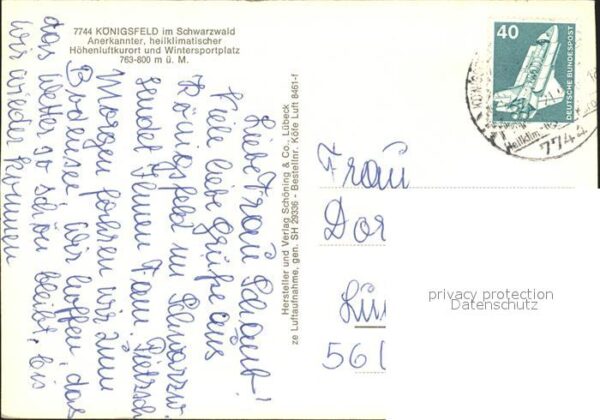 7744 KÖNIGSFELD im Schwarzwald
Anerkannter, heilklimatischer
Höhenluftkurort und Wintersportplatz
763-800 m ü. M.
Liebe Frau Schaub!
Viele liebe Grüße aus
Königsfeld im Schwarzw.
sendet Ihnen Fam. Pietzsch
Morgen fahren wir zum
Bodensee, wir hoffen, das
das Wetter so schön bleibt, bis
wir wieder kommen
Hersteller und Verlag Schöning & Co., Lübeck
ze Luftaufnahme, gen. SH 29336 - Bestellnr. Köre Luft 8461-f
40
DEUTSCHE BUNDESPOST
7744
Frau
Dor
Lün
56
privacy protection
Datenschutz